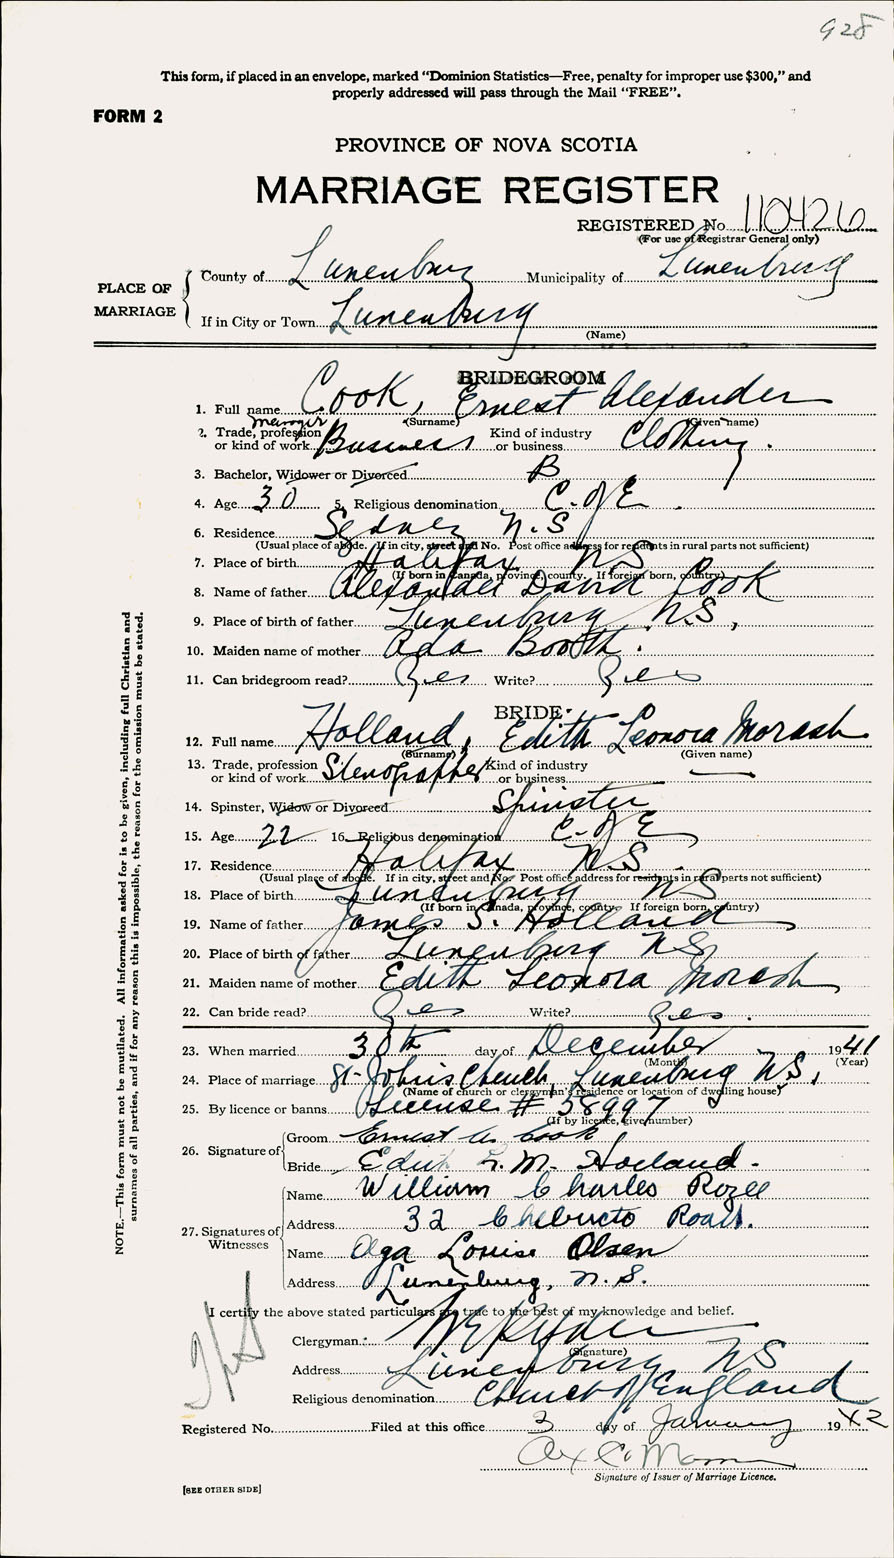 928
This form, if placed in an envelope, marked “Dominion Statistics—Free, penalty for improper use $300,” and
properly addressed will pass through the Mail “FREE”.
FORM 2
PROVINCE OF NOVA SCOTIA
MARRIAGE REGISTER
REGISTERED No. 110426
(For use of Registrar General only)
PLACE OF MARRIAGE
County of Lunenburg Municipality of Lunenburg
If in City or Town Lunenburg
(Name)
BRIDEGROOM
1. Full name Cook, Ernest Alexander
(Surname) (Given name)
manager
2. Trade, profession or kind of work Business Kind of industry or business Clothing.
3. Bachelor, Widower or Divorced B
4. Age 30 5. Religious denomination C. of E.
6. Residence Sydney N.S
(Usual place of abode. If in city, street and No. Post office address for residents in rural parts not sufficient)
7. Place of birth Halifax N.S.
(If born in Canada, province, county. If foreign born, country)
8. Name of father Alexander David Cook
9. Place of birth of father Lunenburg N.S,
10. Maiden name of mother Ada Booth.
11. Can bridegroom read? Yes Write? Yes
BRIDE
12. Full name Holland, Edith Leonora Morash
(Surname) (Given name)
13. Trade, profession or kind of work Stenographer Kind of industry or business —
14. Spinster, Widow or Divorced Spinster
15. Age 22 16. Religious denomination C. of E
17. Residence Halifax N.S.
(Usual place of abode. If in city, street and No. Post office address for residents in rural parts not sufficient)
18. Place of birth Lunenburg NS
(If born in Canada, province, county. If foreign born, country)
19. Name of father James S. Holland
20. Place of birth of father Lunenburg NS,
21. Maiden name of mother Edith Leonora Morash
22. Can bride read? Yes Write? Yes.
23. When married 30th day of December 1941
(Month) (Year)
24. Place of marriage St. John's Church, Lunenburg NS,
(Name of church or clergyman's residence or location of dwelling house)
25. By licence or banns License # 58997
(If by licence, give number)
26. Signature of
Groom Ernest A. Cook
Bride Edith L. M. Holland.
27. Signatures of Witnesses
Name William Charles Rozee
Address 32 Chebucto Road.
Name Olga Louise Olsen
Address Lunenburg, N.S.
I certify the above stated particulars are true to the best of my knowledge and belief.
Clergyman: W E Ryder
(Signature)
Address Lunenburg NS
Religious denomination Church of England
Registered No. Filed at this office 3 day of January 1942
Signature of Issuer of Marriage Licence.
[SEE OTHER SIDE]
NOTE.—This form must not be mutilated. All information asked for is to be given, including full Christian and
surnames of all parties, and if for any reason this is impossible, the reason for the omission must be stated.